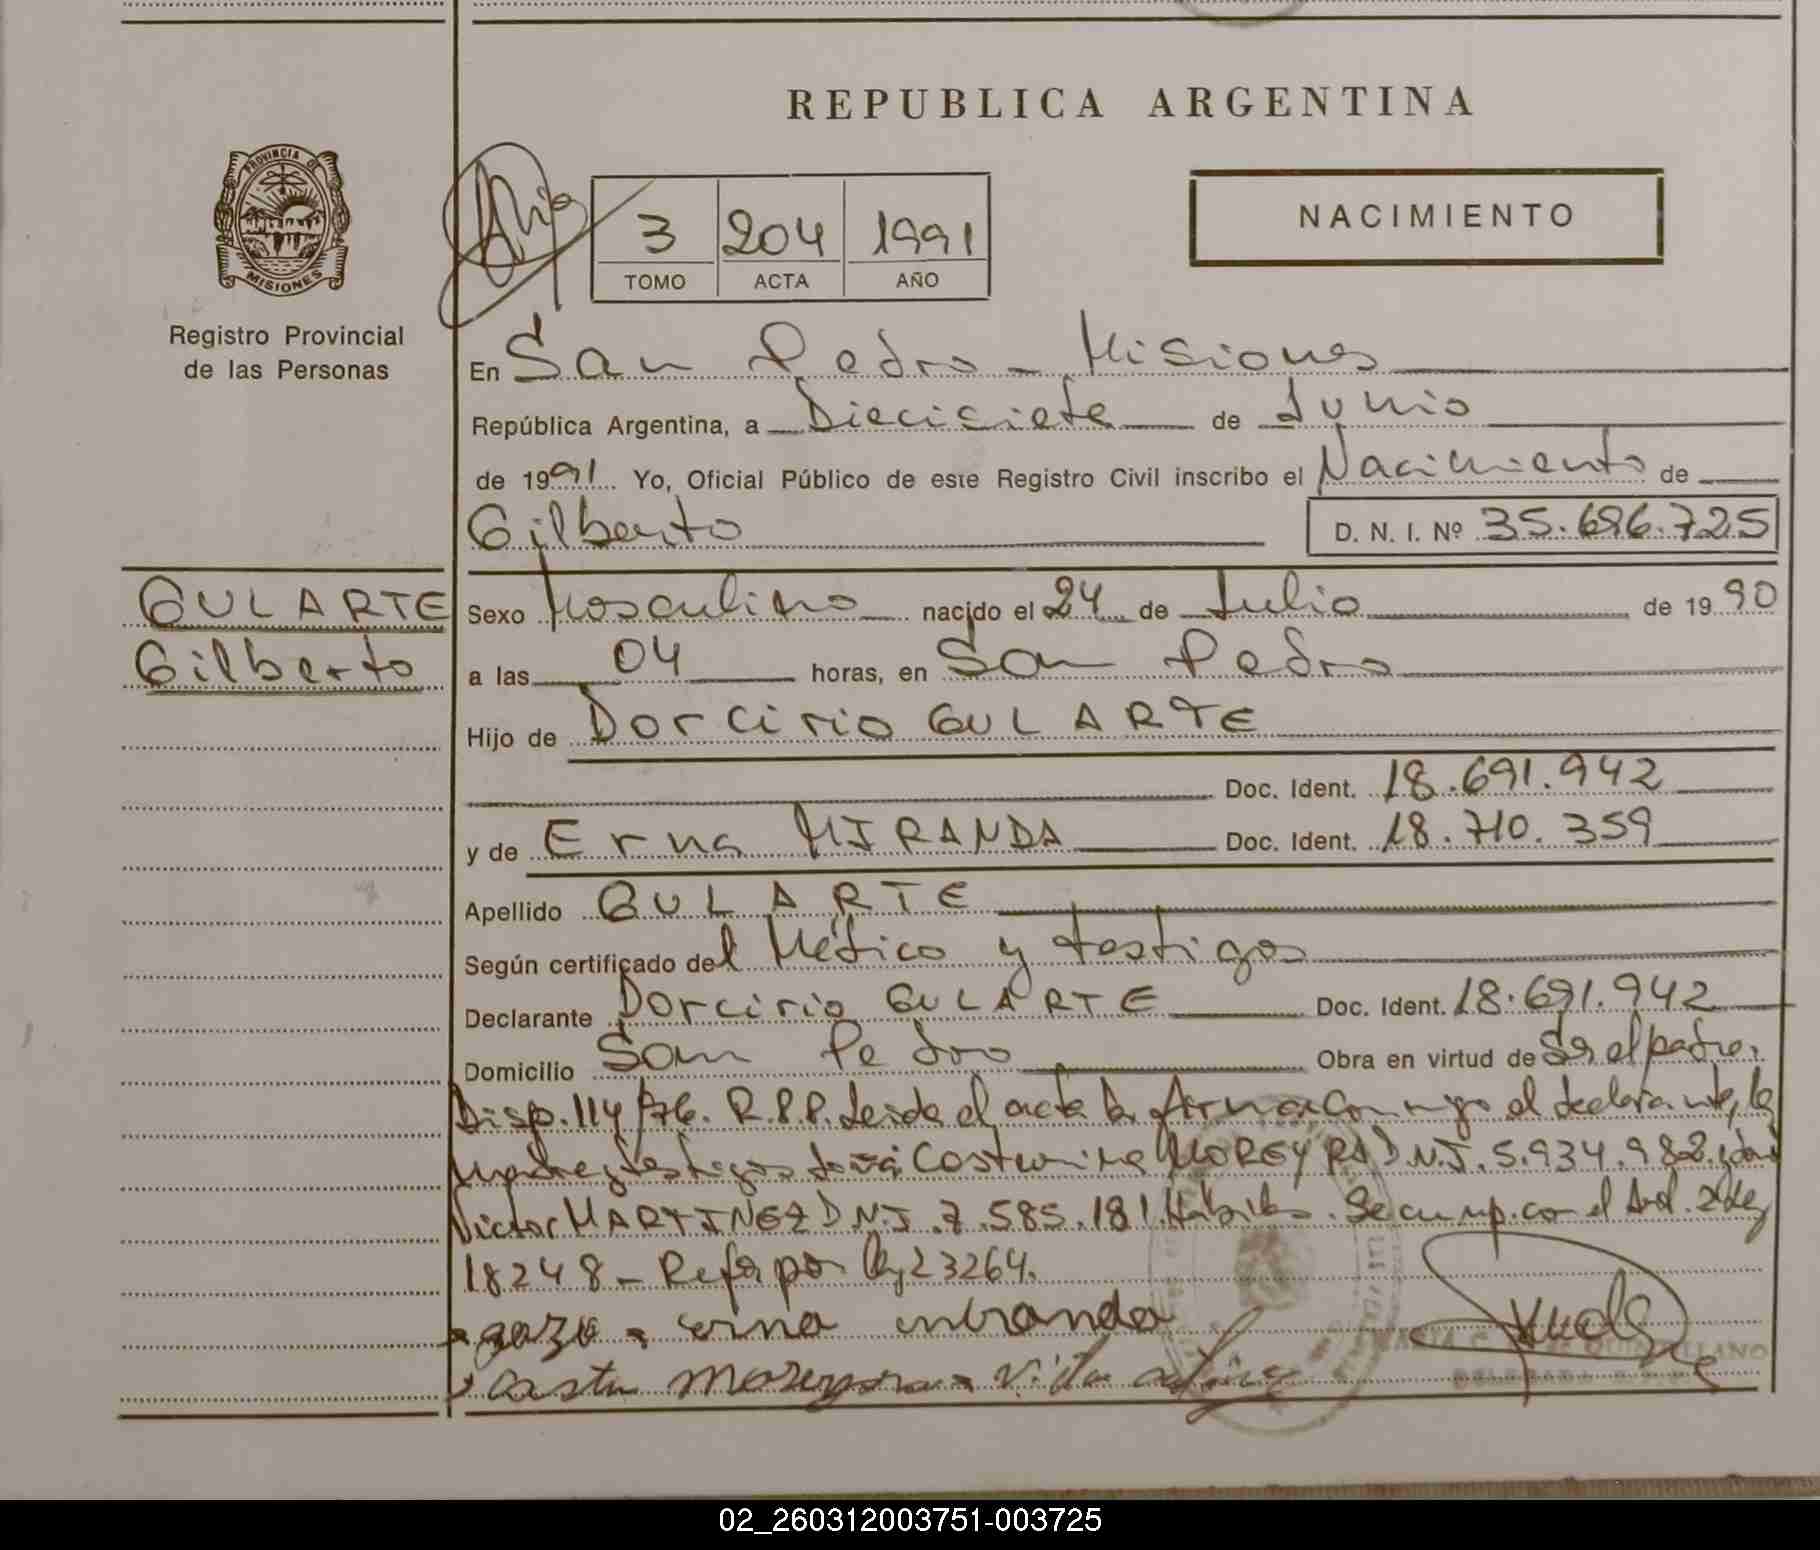 REPUBLICA ARGENTINA
PROVINCIA DE
MISIONES
Registro Provincial
de las Personas
3 204 1991
TOMO ACTA AÑO
NACIMIENTO
En San Pedro - Misiones
República Argentina, a Diecisiete de Junio
de 1991 Yo, Oficial Público de este Registro Civil inscribo el Nacimiento de
Gilberto D. N. I. Nº 35.696.725
GULARTE
Gilberto
Sexo Masculino nacido el 24 de Julio de 1990
a las 04 horas, en San Pedro
Hijo de Dorcirio GULARTE
Doc. Ident. 18.691.942
y de Erna MIRANDA Doc. Ident. 18.710.359
Apellido GULARTE
Según certificado del Médico y testigos
Declarante Dorcirio GULARTE Doc. Ident. 18.691.942
Domicilio San Pedro Obra en virtud de Ser el padre,
Disp. 114/76. R.P.P. Leida el acta la firman conmigo el declarante, la
madre y testigos doña MOREYRA D.N.I. 5.934.982 y don
Victor MARTINEZ D.N.I. 7.585.181 Hábiles. Se cump. con el Art. 2 Ley
18248 - Ref. por Ley 23264.
erna miranda
moreyra
02_260312003751-003725